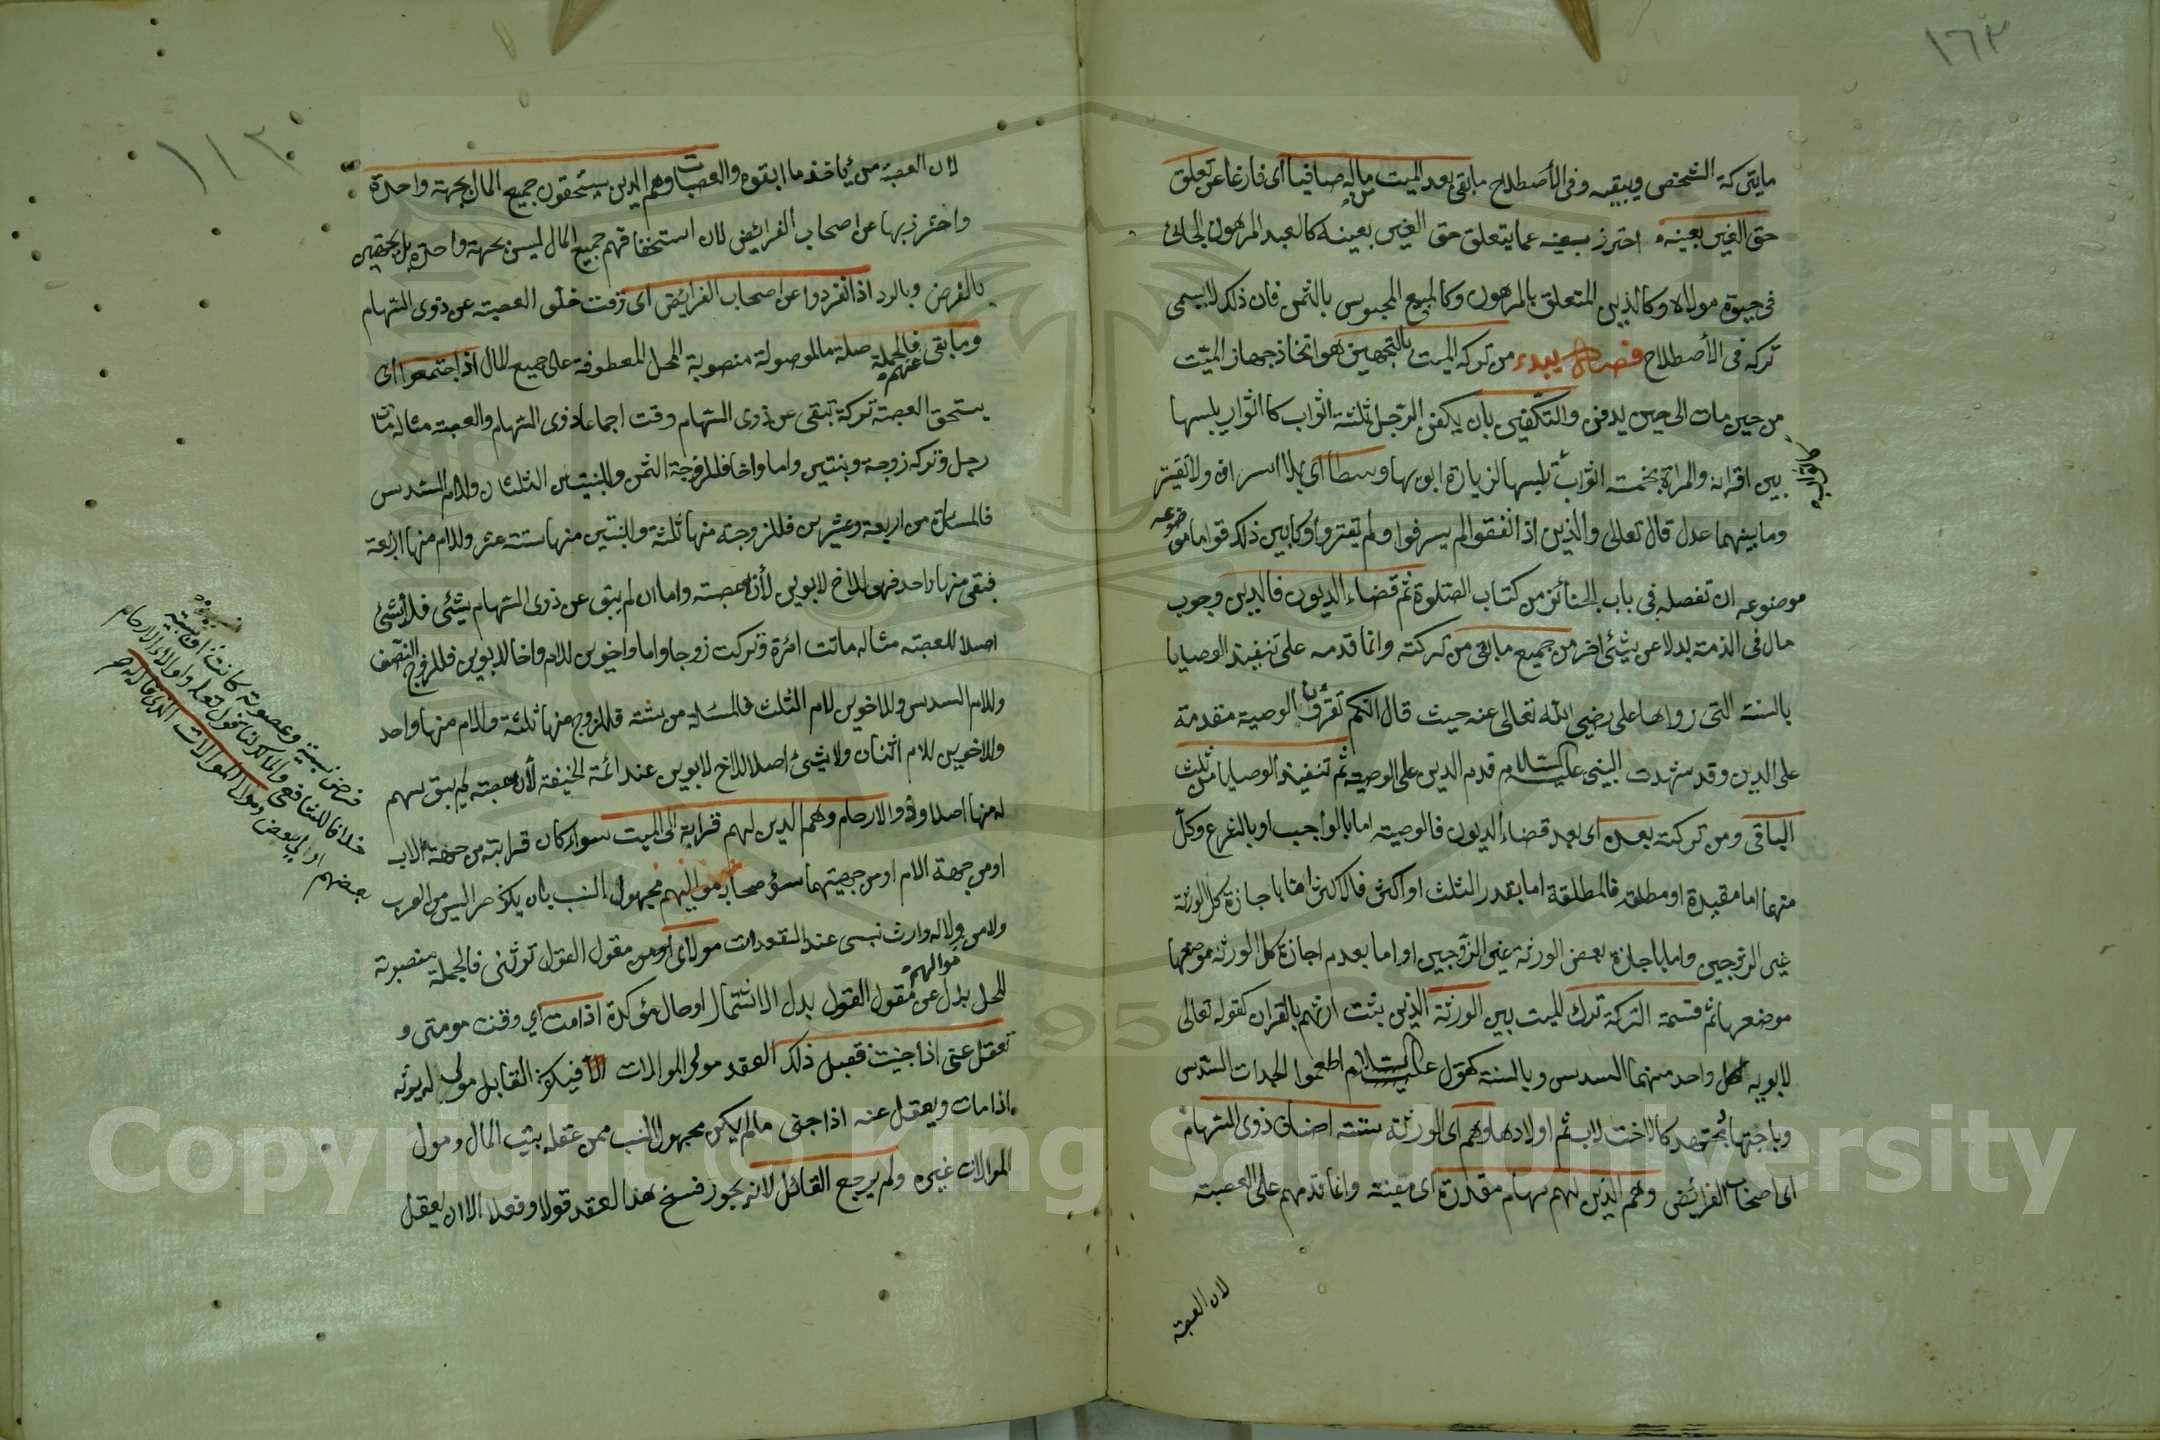 ١٦٢
مايتركه الشخص ويبقيه وفى الأصطلاح مابقى بعد الميت من ماله صافيا اى فارغا عن تعلق
حق الغير بعينه احترز بعينه عما يتعلق حق الغير بعينه كالعبد المرهون الجانى
فى حيوة مولاه وكالدين المتعلق بالمرهون وكالمبيع المحبوس بالثمن فان ذلك لايسمى
تركه فى الأصطلاح فصل يبدء من تركه الميت بالتجهيز هو اتخاذ جهاز الميت
من حين مات الى حين يدفن والتكفين بان يكفن الرجل ثلثة اثواب كالثواب يلبسها
بين اقرانه والمراة بخمسة اثواب تلبسها لزيارة ابويها وسطا اى بلا اسراف ولا تقيتر
وما بينهما عدل قال تعالى والذين اذا انفقوا لم يسرفوا ولم يقتروا وكا بين ذلك قواما موضوعه
موضوعه ان تفصله فى باب الجنائز من كتاب الصلوة ثم قضاء الديون فالدين وجوب
مال فى الذمة بدلا عن شئ اخر من جميع مابقى من تركته وانما قدمه على تنفيذ الوصايا
بالسنة التى رواها على رضى الله تعالى عنه حيث قال انكم تقرؤن الوصية مقدمة
على الدين وقد شهدت النبى عليه السلام قدم الدين على الوصية ثم تنفيذ الوصايا من ثلث
الباقى ومن تركته بعده اى بعد قضاء الديون فالوصيه اما بالواجب او بالتبرع وكل
منهما اما مقيدة او مطلقه فالمطلقة اما بقدر الثلث او اكثر فالاكثر اما باجازة كل الورثة
غير الزوجين واما باجازة بعض الورثة غير الزوجين او اما بعدم اجازة كل الورثه موضعها
موضعها ثم قسمة التركة ترك الميت بين الورثة الذين يثبت ارثهم بالقران كقوله تعالى
لابويه لكل واحد منهما السدس وبالسنة كقول عليه السلام اطعموا الجدات السدس
وباجتهاد مجتهد كالاخت لاب ثم اولادها وهم اى الورثة ستة اصناف ذوى السهام
اى اصحاب الفرائض وهم الذين لهم سهام مقدرة اى معينة وانما قدمهم على العصبة
لان العصبة
١١٢
لان العصبة من ياخذ ما ابقوه والعصبات وهم الذين يستحقون جميع المال بجهة واحدة
واحترز بها عن اصحاب الفرائض لان استحقاقهم جميع المال ليس بجهة واحدة بل بجهتين
بالفرض وبالرد اذا انفردوا عن اصحاب الفرائض اى وقت خلو العصبة عن ذوى السهام
ومابقى عنهم فالجملة صلة ما الموصولة منصوبة المحل المعطوفة على جميع المال اذا اجتمعوا اى
يستحق العصبة تركة تبقى عن ذوى السهام وقت اجتماع ذوى السهام والعصبة مثاله مات
رجل وتركه زوجة وبنتين واما واخا فللزوجة الثمن وللبنتين الثلثان وللام السدس
فالمسئلة من اربعة وعشرين فللزوجة منها ثلثة وللبنتين منها ستة عشر وللام منها اربعة
فبقى منها واحد فهو للاخ لابوين لأنه عصبة واما ان لم يبق عن ذوى السهام شئ فلا شئ
اصلا للعصبة مثاله ماتت امرة وتركت زوجا واما واخوين للام واخا لابوين فللزوج النصف
وللام السدس وللاخوين للام الثلث فالمسئلة من ستة فللزوج منها ثلثة وللام منها واحد
وللاخوين للام اثنان ولاشئ اصلا للاخ لابوين عند ائمة الحنيفة لأنه عصبة لم يبق سهم
له منها اصلا وذو الارحام وهم الذين لهم قرابة الى الميت سواء كان قرابته من جهة الاب
او من جهة الام او من جهيتهما مواليهم مجهول النسب بان يكون حر اليس من العرب
ولا من مواليهم ولا له وارث نسبى عند العقد انت مولاى او من مقول القول ترثنى فالجملة منصبوتة
المحل بدل عن مقول القول بدل الاشتمال او حال مؤكدة اذا مت اي وقت موتى و
تعقل عنى اذا جنيت فقبل ذلك العقد مولى الموالات فيكون القابل مولى له يرثه
اذا مات ويعقل عنه اذا جنى مالم يكن مجهول النسب ممن عقله بيت المال ومول
الموالات غيره ولم يرجع القائل لانه يجوز فسخ هذا العقد قولا وفعلا الا ان يعقل
فرض نسبية وعصوبة كانت او سببية
خلافا للشافعى ومالك لنا قوله تعالى واولوا الارحام
بعضهم اولى ببعض ومولى الموالات الذى قال له